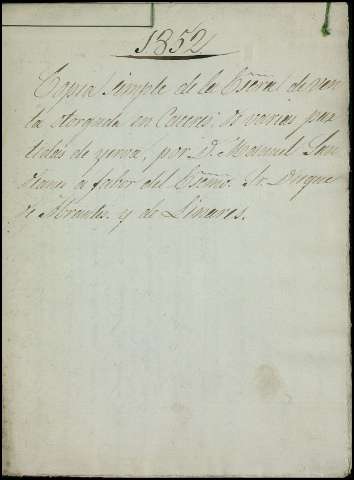 1852
Copia simple de la Escra. de ven
ta otorgada en Caceres, de varias par
tidas de yerva, por D. Manuel San
a fabor del Escmo. Sr. Duque
de Abrantes y de Linares.